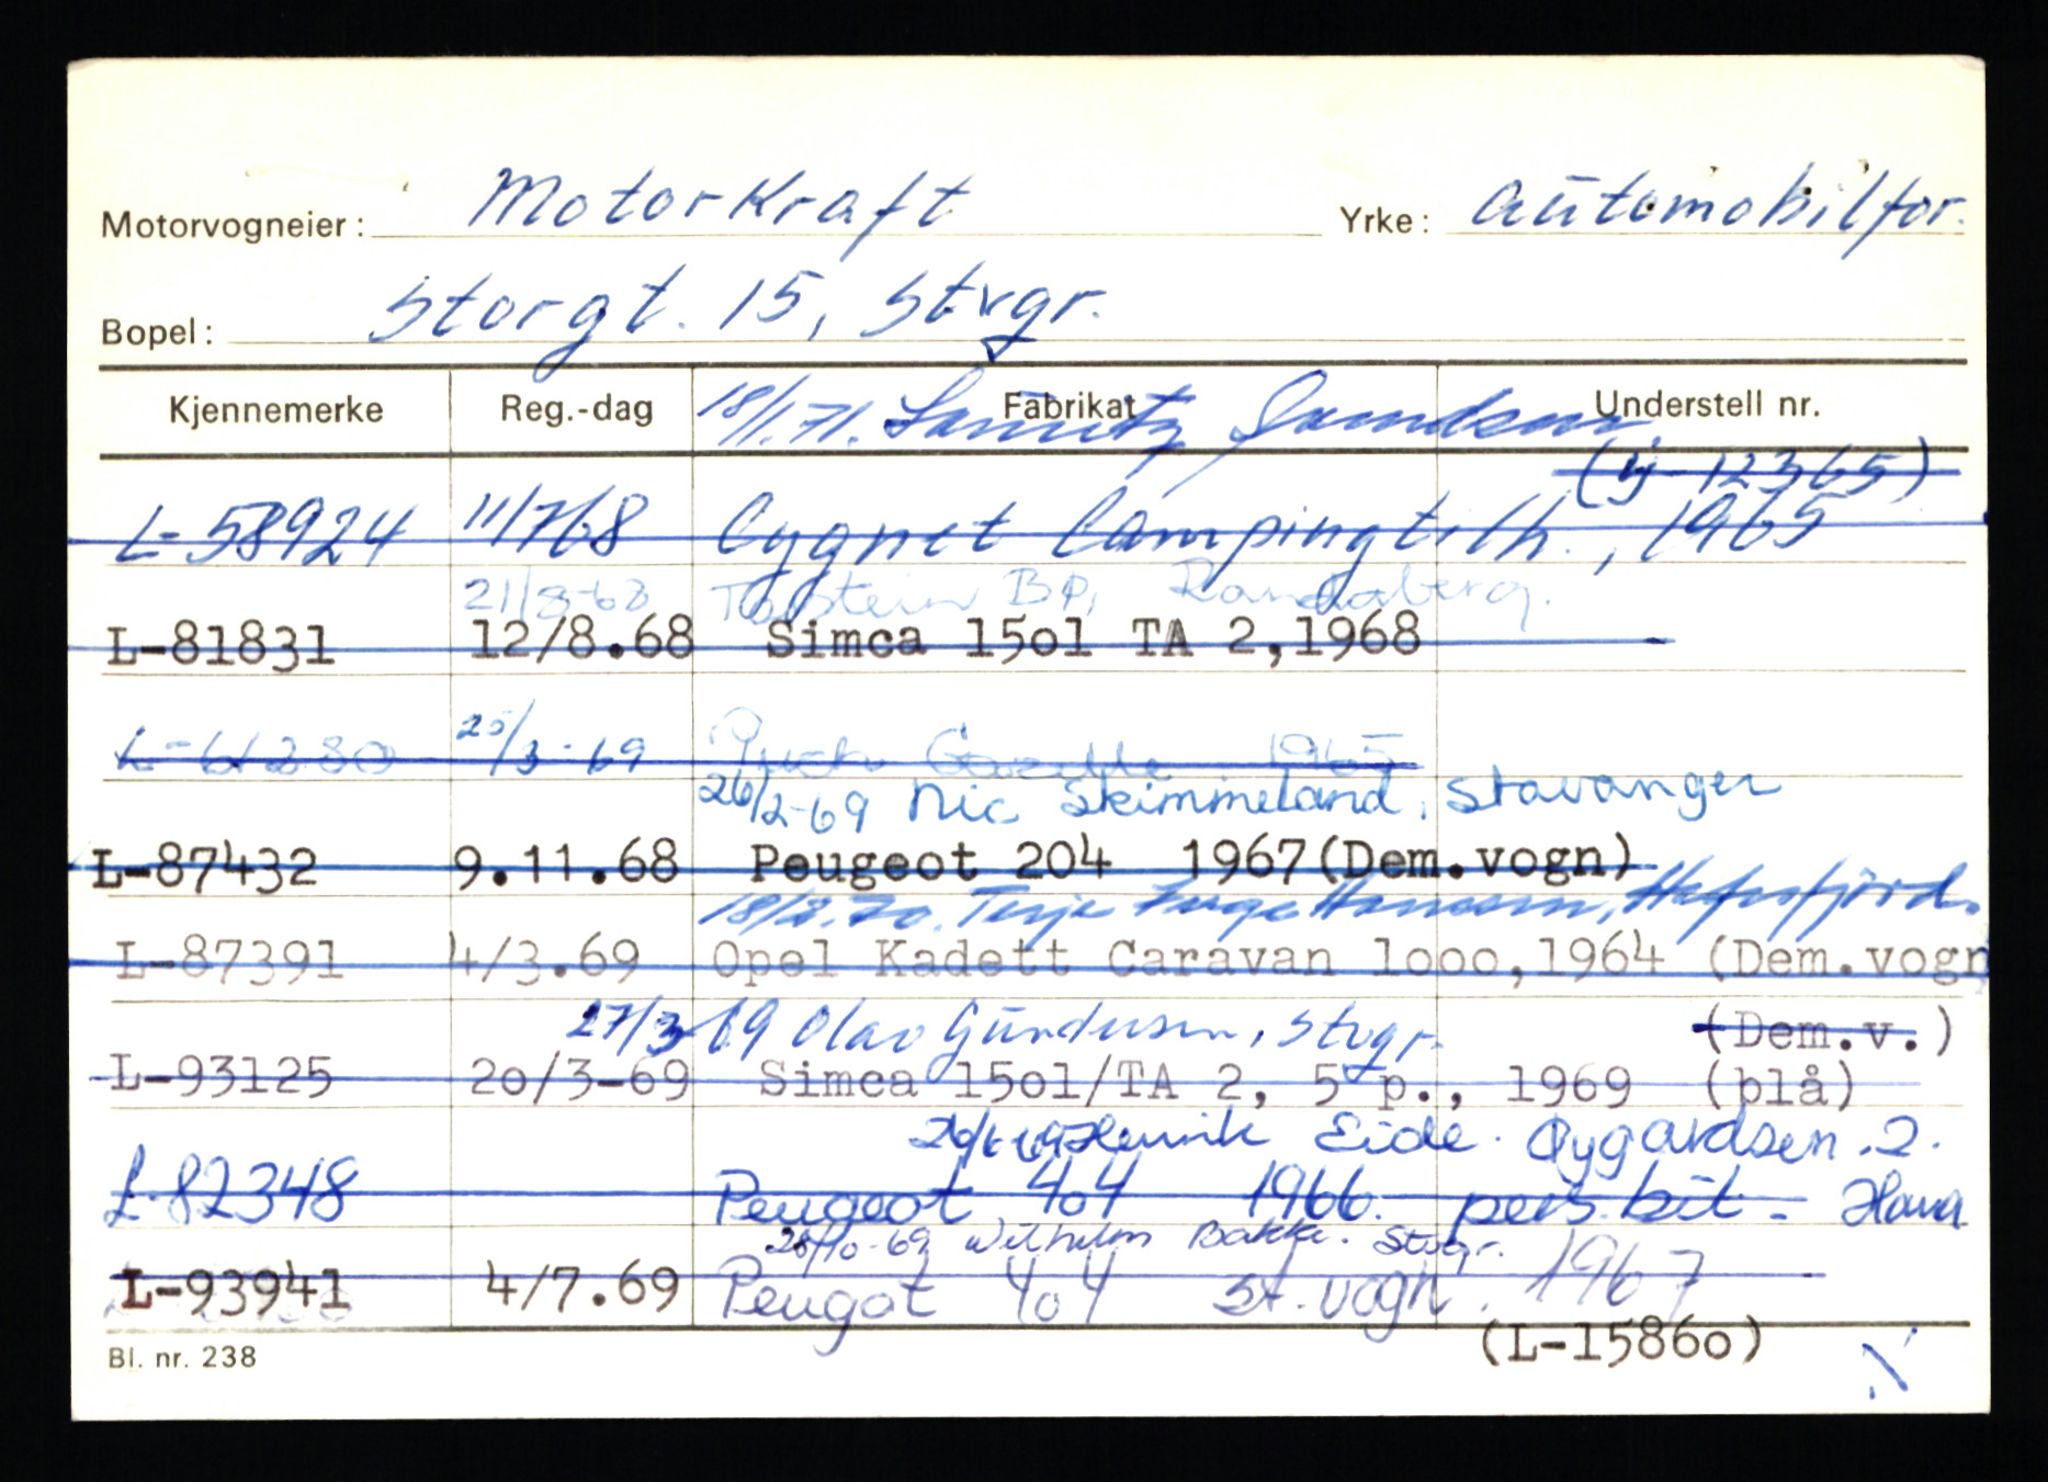 Motorvogneier: Motorkraft Yrke: Automobilfor.
Bopel: Storgt. 15, Stvgr.
Kjennemerke Reg.-dag Fabrikat Understell nr.
18/1.71. Lauritz
12365)
L-58924 11/768 Cygnet Campingtilh., 1965
21/8-68 Torstein Bø, Randaberg.
L-81831 12/8.68 Simca 15o1 TA 2,1968
L-61280 25/3-69 Puch 1965
26/2-69 Nic Skimmeland, Stavanger
L-87432 9.11.68 Peugeot 204 1967(Dem.vogn)
18/2.70. Terje Inge Hanssen, Hafrsfjord.
L-87391 4/3.69 Opel Kadett Caravan 1ooo,1964 (Dem.vogn
27/3 69 Olav Gundersen, Stvgr. (Dem.v.)
L-93125 2o/3-69 Simca 15o1/TA 2, 5 p., 1969 (blå)
Henrik Eide. Øygardsen .2.
L-82348 Peugeot 404 1966. pers.bil - Hana
28/10-69 Wilhelm Bakke. Stvgr.
L-93941 4/7.69 Peugot 404 St.vogn. 1967
(L-1586o)
Bl. nr. 238